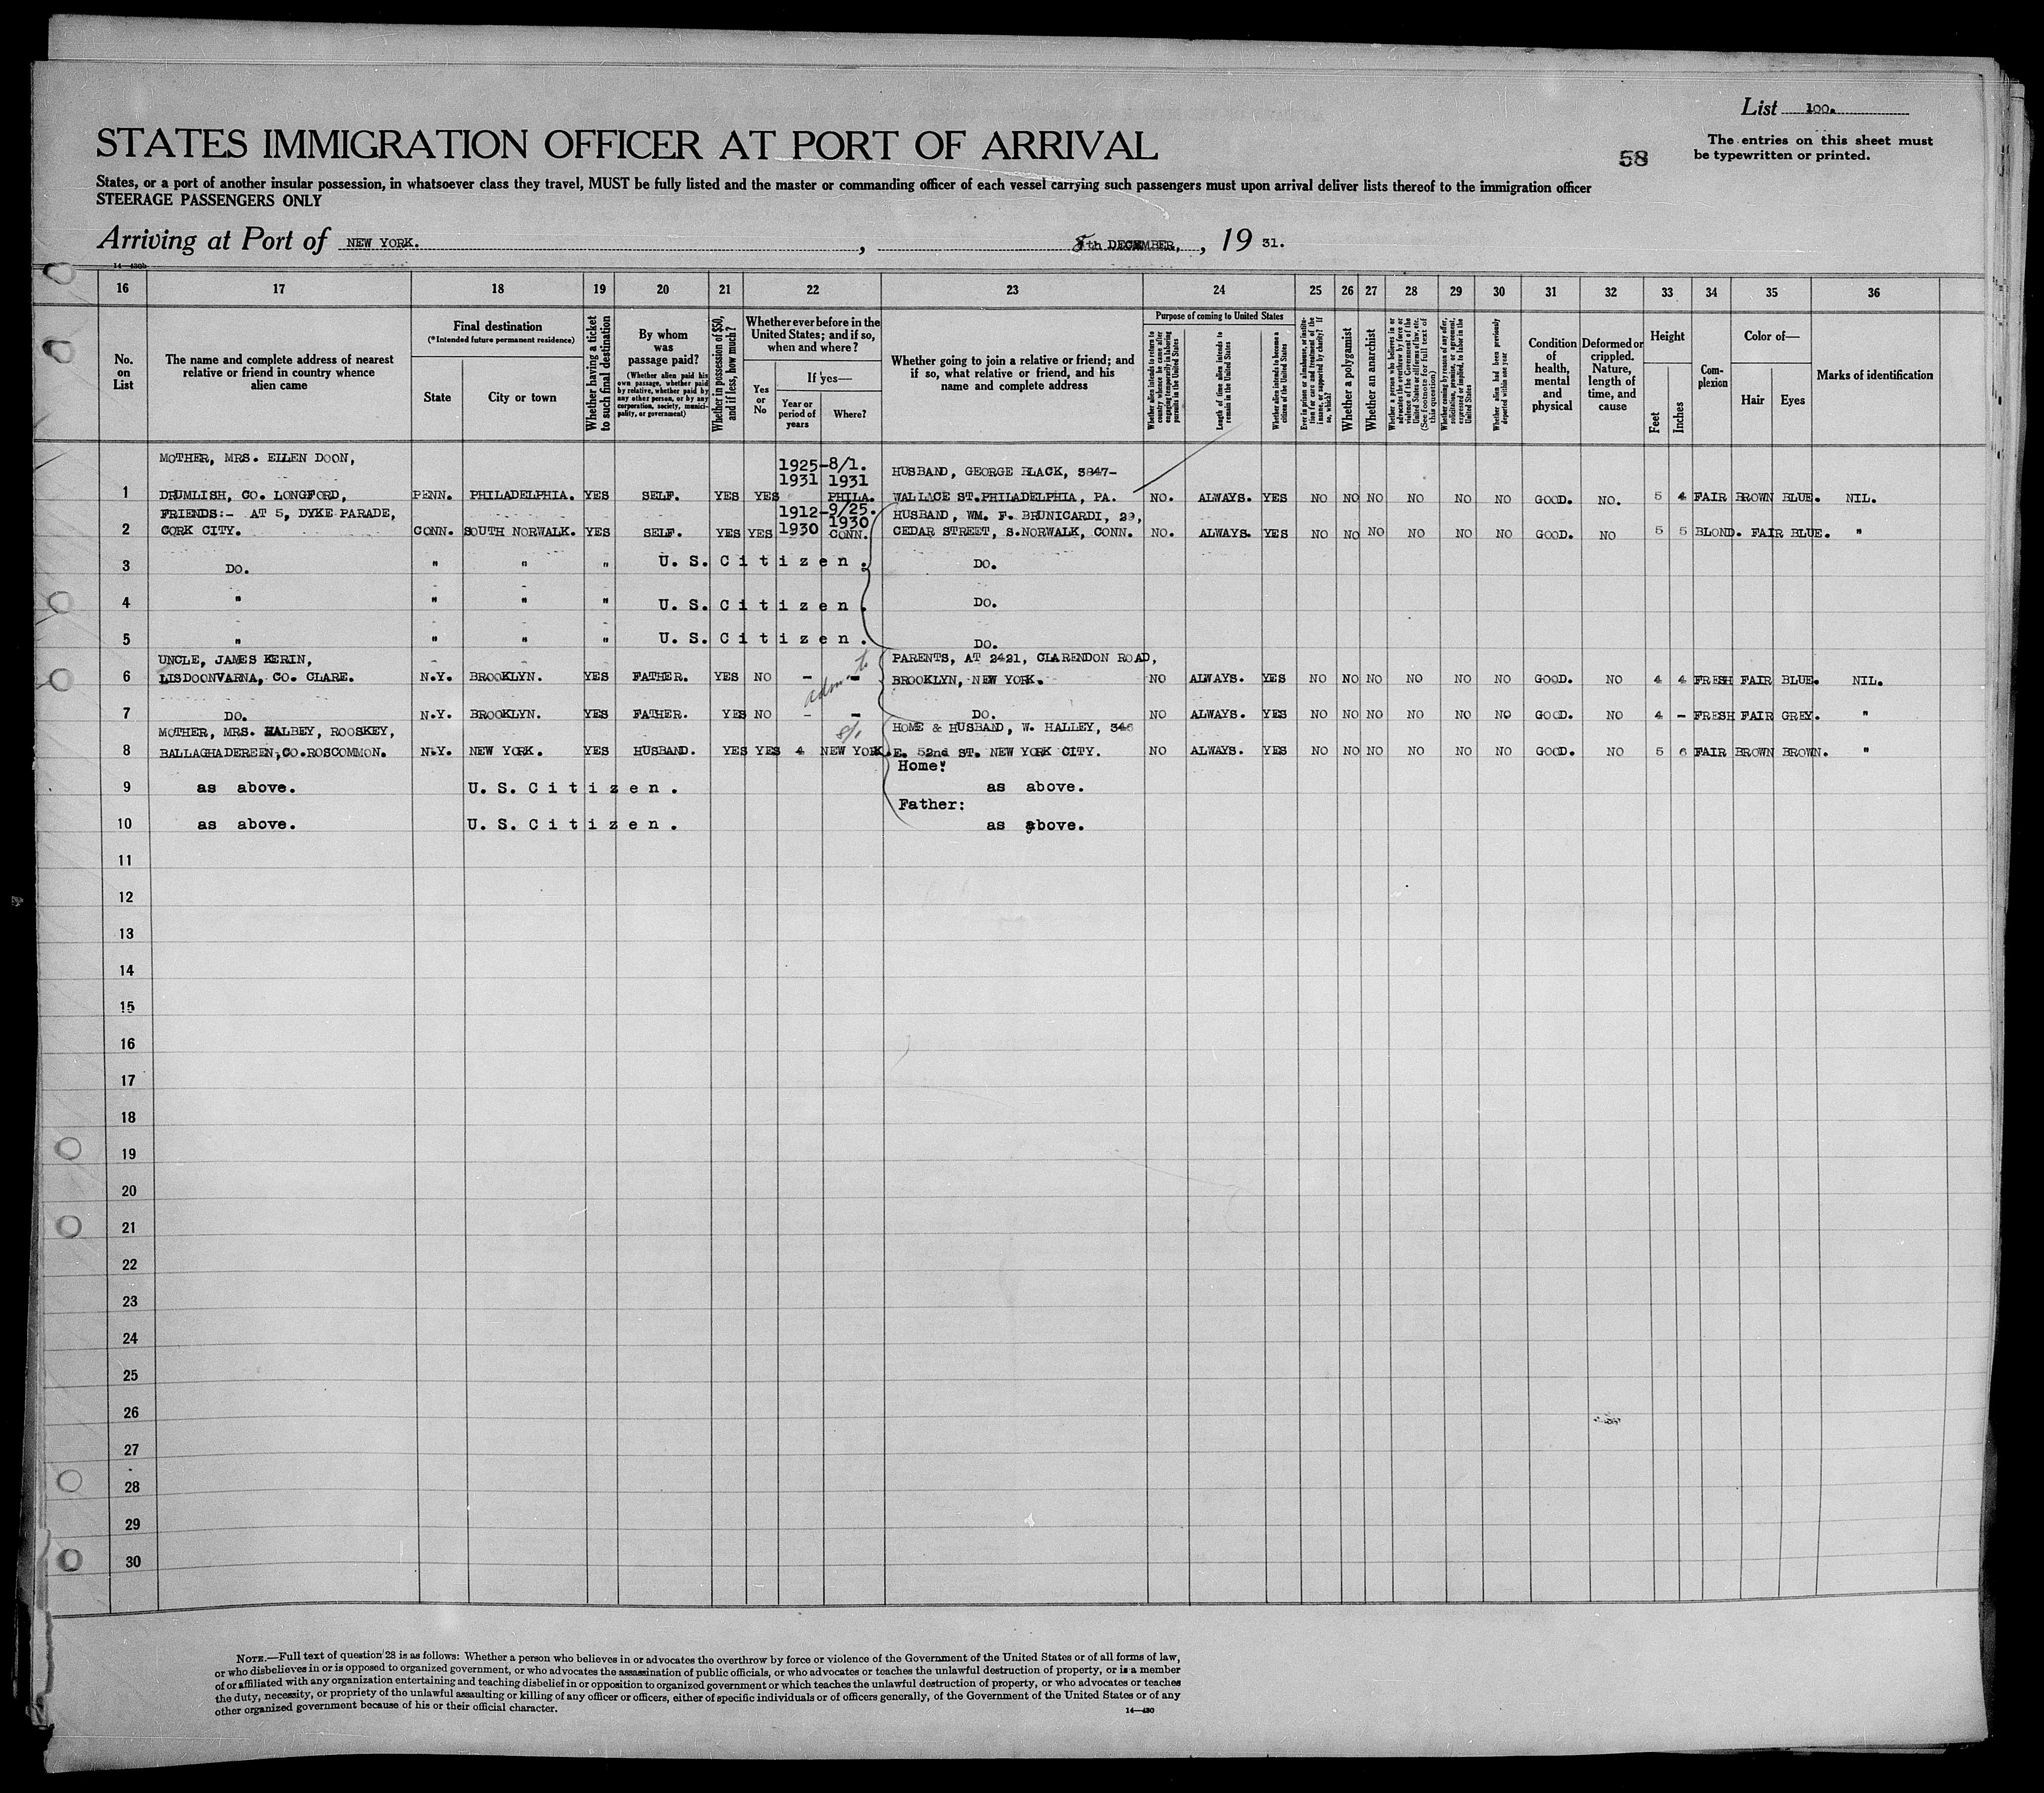 List 100.
STATES IMMIGRATION OFFICER AT PORT OF ARRIVAL
58
The entries on this sheet must
be typewritten or printed.
States, or a port of another insular possession, in whatsoever class they travel, MUST be fully listed and the master or commanding officer of each vessel carrying such passengers must upon arrival deliver lists thereof to the immigration officer
STEERAGE PASSENGERS ONLY
Arriving at Port of NEW YORK. , 8th DECEMBER, , 19 31.
14—430b
16 17 18 19 20 21 22 23 24 25 26 27 28 29 30 31 32 33 34 35 36
No. on List
The name and complete address of nearest relative or friend in country whence alien came
Final destination
(*Intended future permanent residence)
State
City or town
Whether having a ticket to such final destination
By whom was passage paid?
(Whether alien paid his own passage, whether paid by relative, whether paid by any other person, or by any corporation, society, municipality, or government)
Whether in possession of $50, and if less, how much?
Whether ever before in the United States; and if so, when and where?
Yes or No
If yes—
Year or period of years
Where?
Whether going to join a relative or friend; and if so, what relative or friend, and his name and complete address
Purpose of coming to United States
Whether alien intends to return to country whence he came after engaging temporarily in laboring pursuits in the United States
Length of time alien intends to remain in the United States
Whether alien intends to become a citizen of the United States
Ever in prison or almshouse, or institution for care and treatment of the insane, or supported by charity? If so, which?
Whether a polygamist
Whether an anarchist
Whether a person who believes in or advocates the overthrow by force or violence of the Government of the United States or of all forms of law, etc. (See footnote for full text of this question)
Whether coming by reason of any offer, solicitation, promise, or agreement, expressed or implied, to labor in the United States
Whether alien had been previously deported within one year
Condition of health, mental and physical
Deformed or crippled. Nature, length of time, and cause
Height
Feet
Inches
Complexion
Color of—
Hair
Eyes
Marks of identification
MOTHER, MRS. EILEN DOON, 1925-8/1. HUSBAND, GEORGE BLACK, 3847-
1931 1931
1 DRUMLISH, CO. LONGFORD, PENN. PHILADELPHIA. YES SELF. YES YES PHILA. WALLACE ST.PHILADELPHIA, PA. NO. ALWAYS. YES NO NO NO NO NO NO GOOD. NO. 5 4 FAIR BROWN BLUE. NIL.
FRIENDS:- AT 5, DYKE PARADE, 1912-9/25. HUSBAND, WM. F. BRUNICARDI, 29,
1930
2 CORK CITY. CONN. SOUTH NORWALK. YES SELF. YES YES 1930 CONN. CEDAR STREET, S.NORWALK, CONN. NO. ALWAYS. YES NO NO NO NO NO NO GOOD. NO 5 5 BLOND. FAIR BLUE. "
3 DO. " " " U. S. Citizen. DO.
4 " " " " U. S. Citizen. DO.
5 " " " " U. S. Citizen. DO.
UNCLE, JAMES KERIN, PARENTS, AT 2421, CLARENDON ROAD,
6 LISDOONVARNA, CO. CLARE. N.Y. BROOKLYN. YES FATHER. YES NO - - BROOKLYN, NEW YORK. NO ALWAYS. YES NO NO NO NO NO NO GOOD. NO 4 4 FRESH FAIR BLUE. NIL.
7 DO. N.Y. BROOKLYN. YES FATHER. YES NO - - DO. NO ALWAYS. YES NO NO NO NO NO NO GOOD. NO 4 - FRESH FAIR GREY. "
MOTHER, MRS. HALBEY, ROOSKEY, 8/1 HOME & HUSBAND, W. HALLEY, 346
8 BALLAGHADEREEN, CO.ROSCOMMON. N.Y. NEW YORK. YES HUSBAND. YES YES 4 NEW YORK. E. 52nd ST. NEW YORK CITY. NO ALWAYS. YES NO NO NO NO NO NO GOOD. NO 5 6 FAIR BROWN BROWN. "
Home:
9 as above. U. S. Citizen. as above.
Father:
10 as above. U. S. Citizen. as above.
11
12
13
14
15
16
17
18
19
20
21
22
23
24
25
26
27
28
29
30
NOTE.—Full text of question 28 is as follows: Whether a person who believes in or advocates the overthrow by force or violence of the Government of the United States or of all forms of law,
or who disbelieves in or is opposed to organized government, or who advocates the assassination of public officials, or who advocates or teaches the unlawful destruction of property, or is a member
of or affiliated with any organization entertaining and teaching disbelief in or opposition to organized government or which teaches the unlawful destruction of property, or who advocates or teaches
the duty, necessity, or propriety of the unlawful assaulting or killing of any officer or officers, either of specific individuals or of officers generally, of the Government of the United States or of any
other organized government because of his or their official character.
14—430